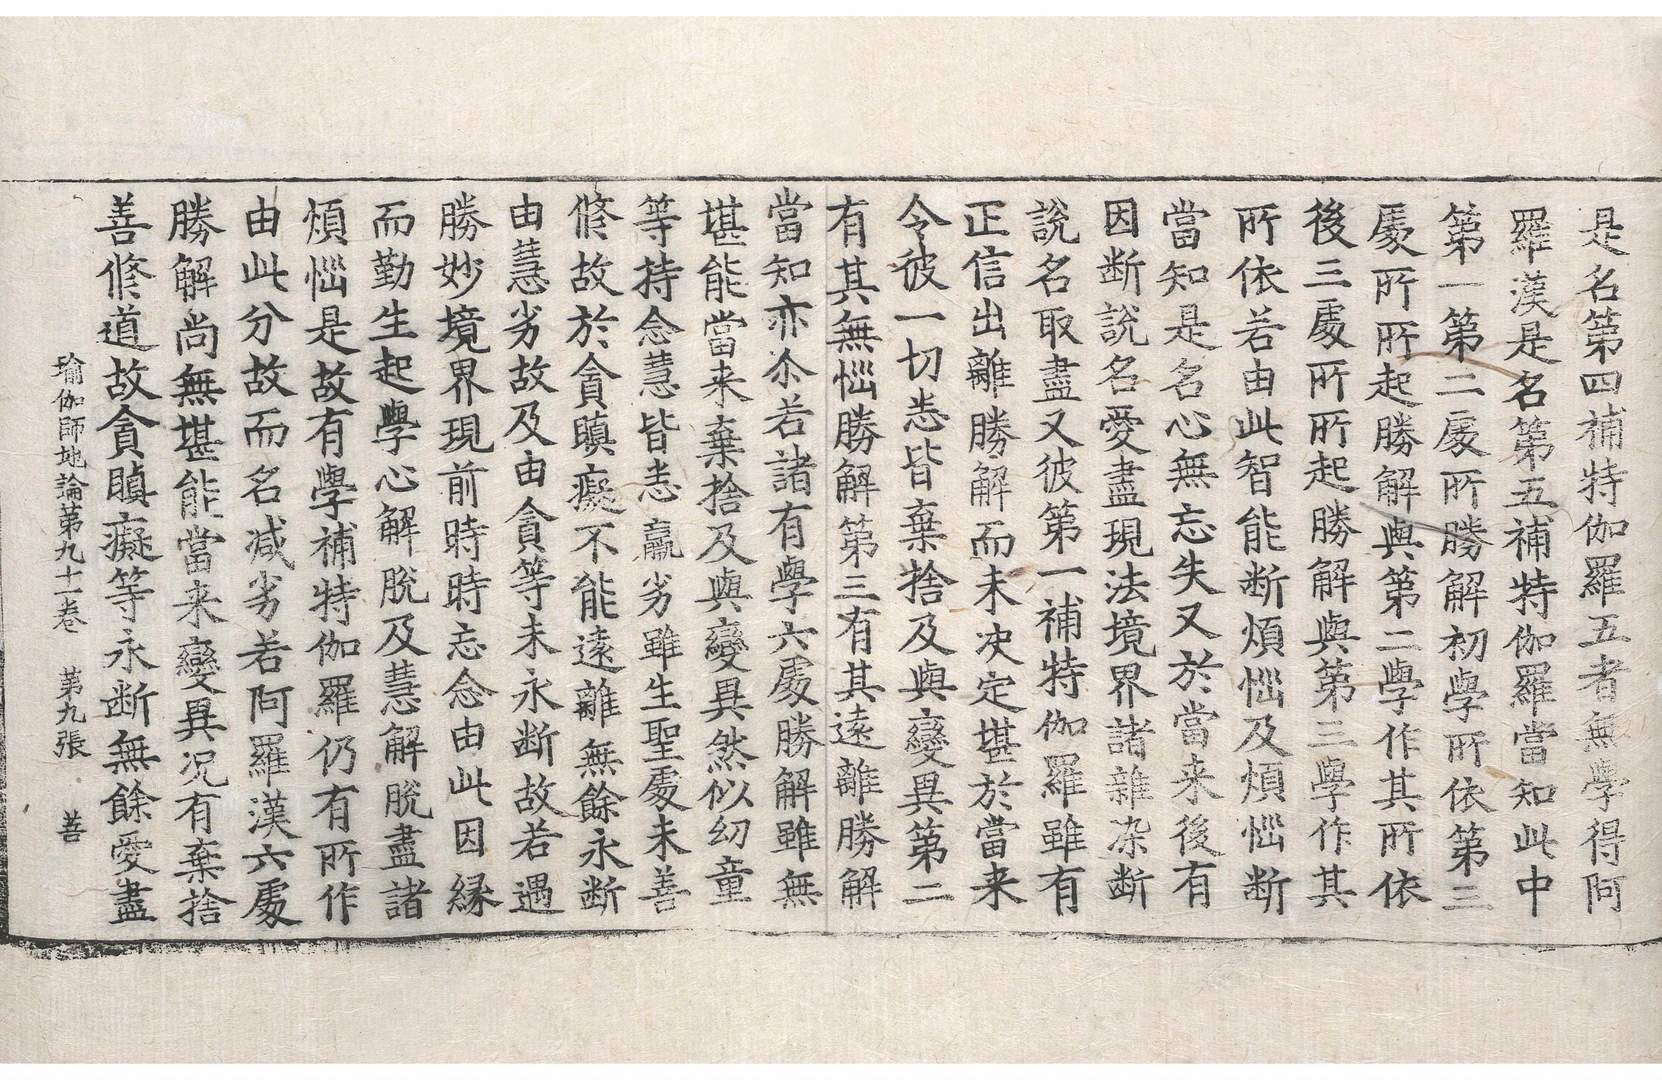 是名第四補特伽羅五者無學得阿
羅漢是名第五補特伽羅當知此中
第一第二處所勝解初學所依第三
處所所起勝解與第二學作其所依
後三處所所起勝解與第三學作其
所依若由此智能断煩惱及煩惱断
當知是名心無忘失又於當来後有
因断說名愛盡現法境界諸雜染断
說名取盡又彼第一補特伽羅雖有
正信出離勝解而未决定堪於當来
令彼一切悉皆棄捨及與變異第二
有其無惱勝解第三有其遠離勝解
當知亦尒若諸有學六處勝解雖無
堪能當来棄捨及與變異然似幼童
等持念慧皆悉羸劣雖生聖處未善
脩故於貪瞋癡不能遠離無餘永断
由慧劣故及由貪等未永断故若遇
勝妙境界現前時時忘念由此因縁
而勤生起學心解脫及慧解脫盡諸
煩惱是故有學補特伽羅仍有所作
由此分故而名减劣若阿羅漢六處
勝解尚無堪能當来變異况有棄捨
善脩道故貪瞋癡等永断無餘愛盡
瑜伽師地論第九十一卷 第九張 善